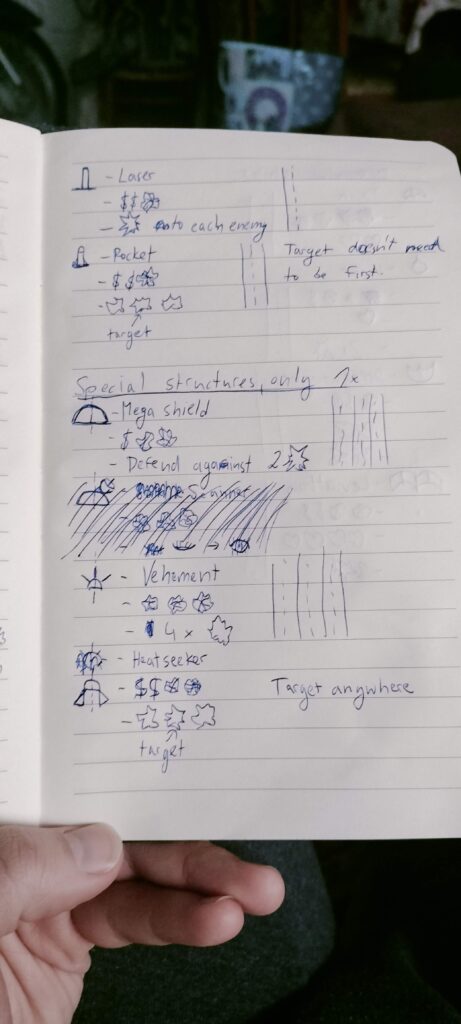 - Laser
- $$
- onto each enemy
- Rocket
Target doesn't need
- $$
to be first.
-
target
Special structures, only 1x
- Mega shield
- $
- Defend against 2
Scanner
- Vehement
-
- 4 x
- Heatseeker
- $$
Target anywhere
-
target